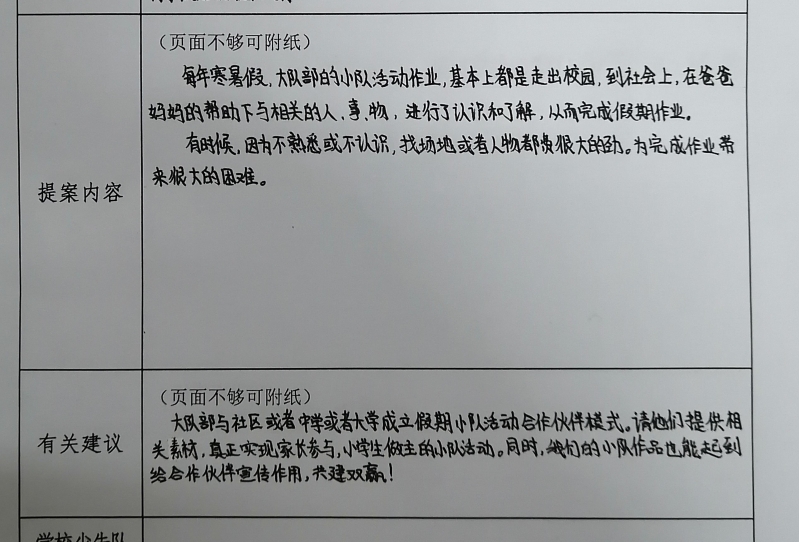 （页面不够可附纸）
每年寒暑假，大队部的小队活动作业，基本上都是走出校园，到社会上，在爸爸
妈妈的帮助下与相关的人、事、物，进行了认识和了解，从而完成假期作业。
有时候，因为不熟悉或不认识，找场地或者人物都费很大的劲。为完成作业带
来很大的困难。
提案内容
（页面不够可附纸）
大队部与社区或者中学或者大学成立假期小队活动合作伙伴模式。请他们提供相
关素材，真正实现家长参与，小学生做主的小队活动。同时，我们的小队作品也能起到
给合作伙伴宣传作用，共建双赢！
有关建议
学校少先队